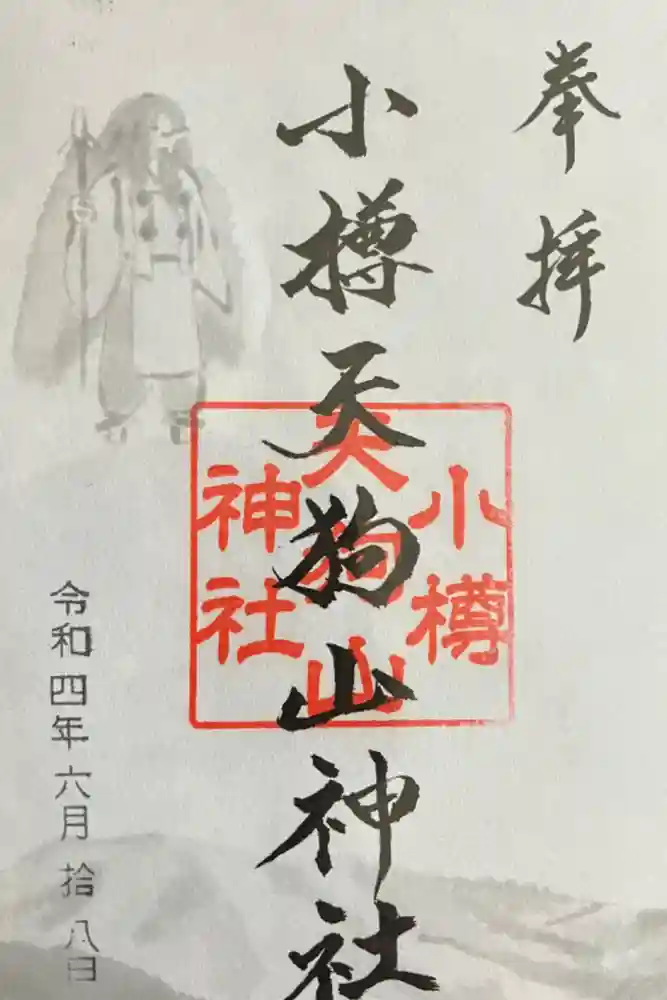 奉拝
小樽天狗山神社
小樽
天狗山
神社
令和四年六月拾八日